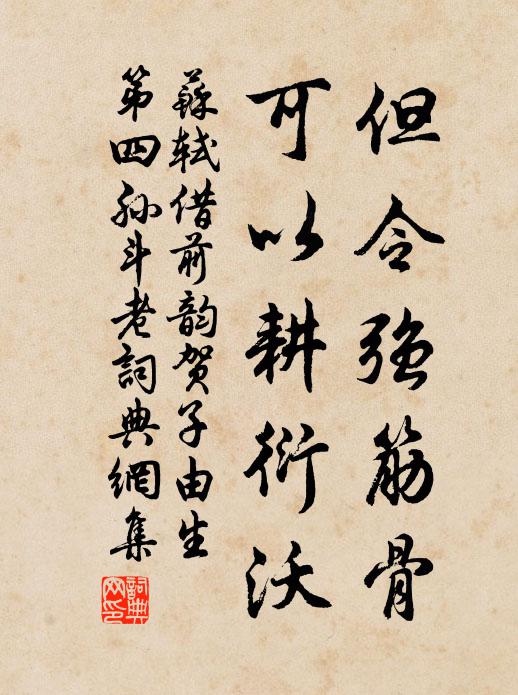 但令強筋骨
可以耕衍沃
蘇軾借前韵賀子由生
第四孫斗老詞典網集
詞典网印